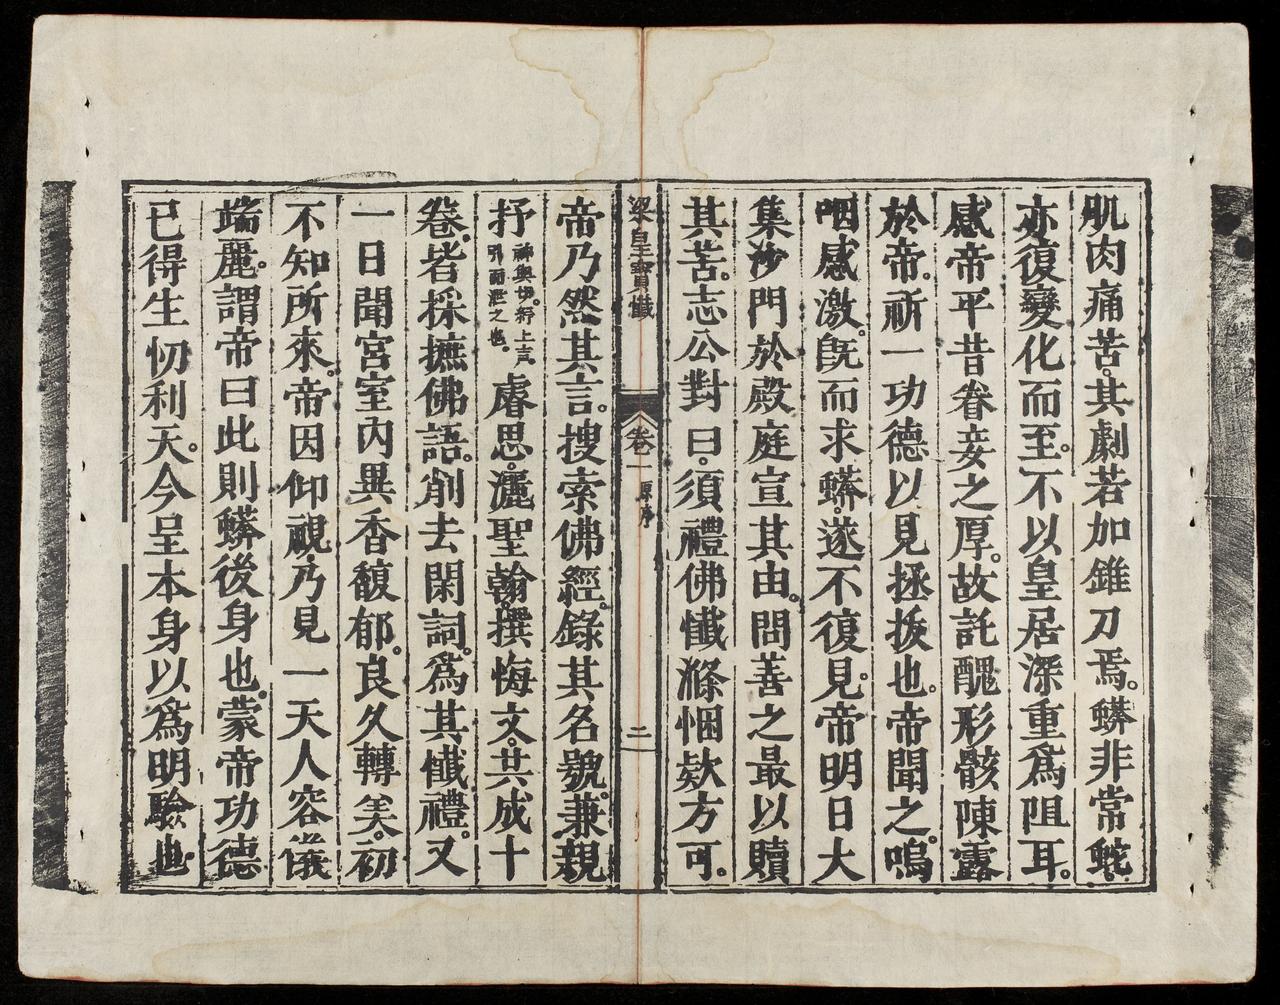 肌肉痛苦。其劇若加錐刀焉。蟒非常蛇。
亦復變化而至。不以皇居深重爲阻耳。
感帝平昔眷妾之厚。故託醜形骸陳露
於帝。祈一功德以見拯拔也。帝聞之。嗚
咽感激。旣而求蟒。遂不復見。帝明日大
集沙門於殿庭宣其由。問善之最以贖
其苦。志公對曰。須禮佛懺滌悃欵方可。
梁皇寶懺
卷一
原序
二
帝乃然其言。搜索佛經。錄其名號。兼親
抒神與切。行上言引而泄之也。睿思。灑聖翰。撰悔文。共成十
卷。皆採摭佛語。削去閑詞。爲其懺禮。又
一日聞宮室內異香馥郁。良久轉美。初
不知所來。帝因仰視。乃見一天人容儀
端麗。謂帝曰此則蟒後身也。蒙帝功德
已得生忉利天。今呈本身以爲明驗也。